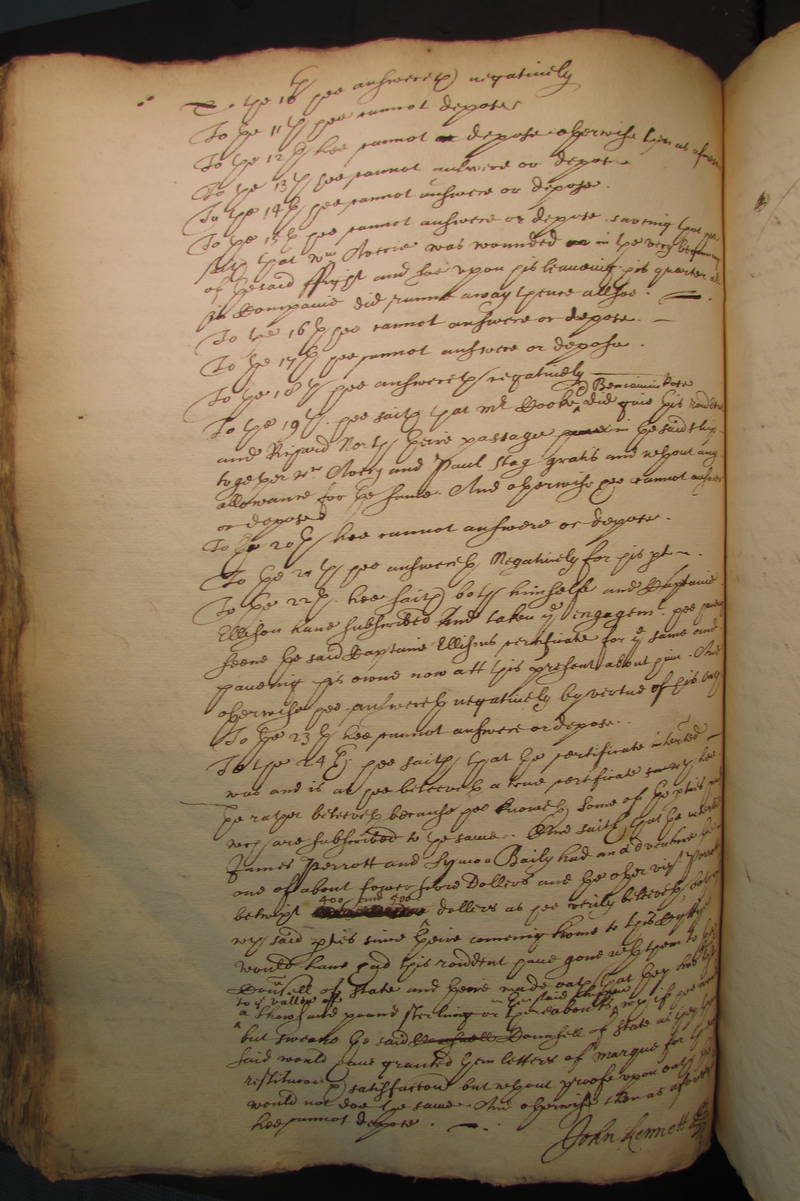 To the 10th hee answereth negatively
To the 11th hee cannot depose
To the 12th hee cannot depose otherwise then as aforesaid
To the 13th hee cannot answere or depose
To the 14th hee cannot answere or depose.
To the 15th hee cannot answere or depose. saveing that hee
saith that Wm Averie was wounded in the very beginning
of the said ffight and hee upon his leaveing his quarter
in Companie did runne away thence allsoe.
To the 16th hee cannot answere or depose.
To the 17th hee cannot answere or depose.
To the 18th hee answereth negatively
To the 19th. hee saith that Mr Cooke did give this rendent
Beniamin Rose
and Richard North theire passage in the said shipp
together wth Avery and Paul Stag gratis and without any
allowance for the same. And otherwise hee cannot answere
or depose
To the 20th hee cannot answere or depose.
To the 21 th hee answereth Negatively for his pt.
To the 22th. hee saith both himselfe and Captaine
Ellison have subscribed and taken ye engagemt. hee haveing
seene the said Captaine Ellisons certificate for ye same and
haveing his owne now att this present about him. And
otherwise hee answereth negatively by virtue of his oath
To the 23th hee cannot answere or depose.
To the 24th hee saith that the certificate interred
was and is as hee beleeveth a true certificate hee
the rather beleeveth because hee knoweth some of the
are subscribed to the same. And saith that the
James Perrott and Symon Baily had an adventure
one of about fower score Dollers and the other
betwixt 400 and 500 dollers as hee verily beleeveth
said pties since theire comeing home to this
would have had this rendent have gone with them to the
Counsell of State and there made oath that they
to ye vallue of
a thowsand pound sterling or thereabouts if hee
the said shipp
but sweare the said Counsell of State as they
said would have granted them letters of marque for
restitucon satisfaccon but without proofe upon oath
would not doe the same. And otherwise then as aforesaid
hee cannot depose.
John Kennett